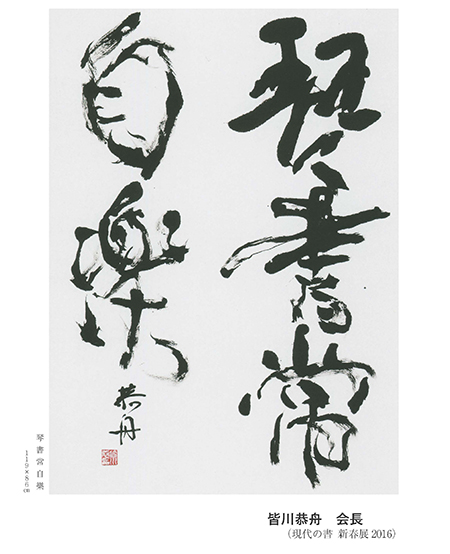 琴書常
自樂
恭舟
琴書常自樂
119×86㎝
皆川恭舟 会長
(現代の書 新春展2016)